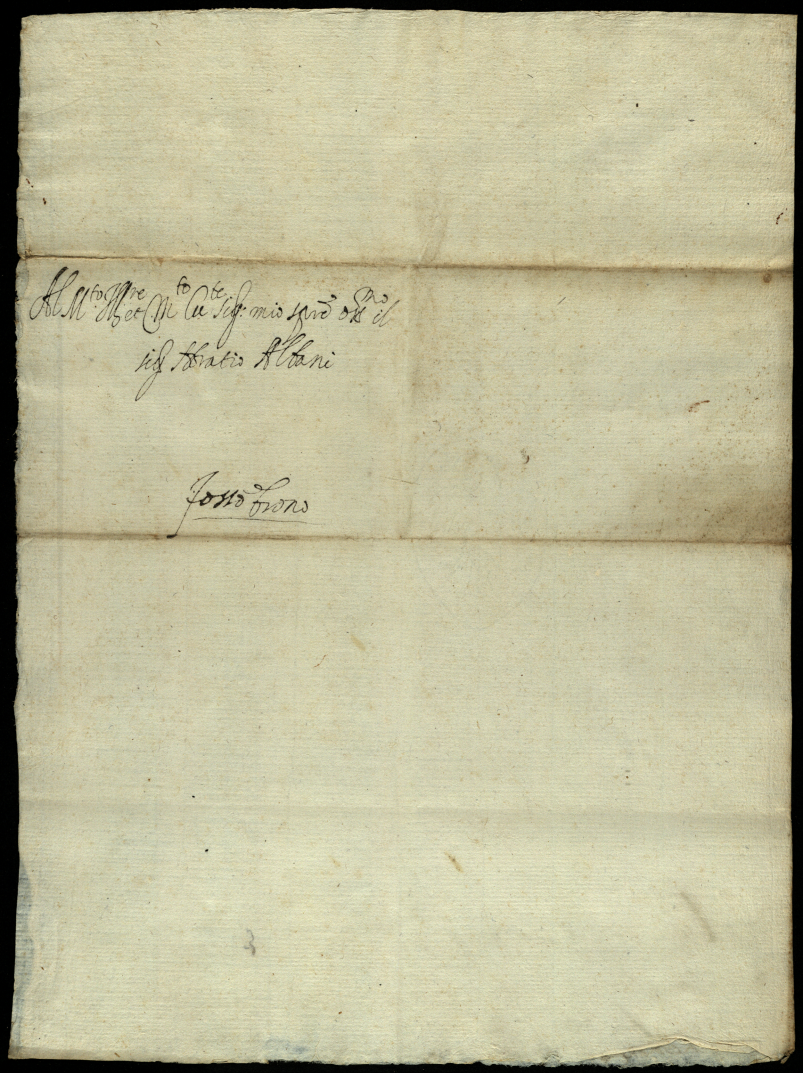 Al M.to Ill.re et M.to Ecc.te sig.r mio sig.re oss.mo il
sig.r Horatio Albani
Fossombrone